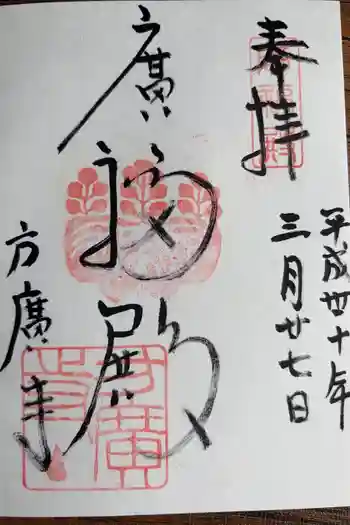 奉拝
平成廿十年
三月廿七日
廣福殿
方廣寺